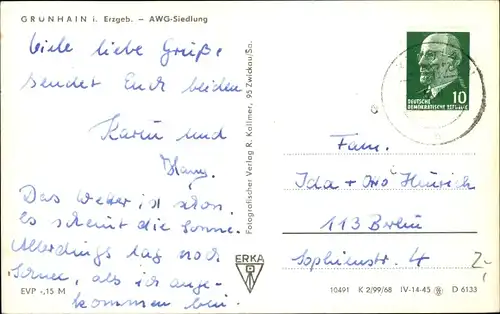 GRÜNHAIN i. Erzgeb. – AWG-Siedlung
Viele liebe Grüße
sendet Euch beiden
Karin und
Hans.
Das Wetter ist schön.
Es scheint die Sonne.
Allerdings lag noch
Schnee, als ich ange-
kommen bin.
EVP -,15 M
Fotografischer Verlag R. Kallmer, 95 Zwickau/Sa.
ERKA
10
DEUTSCHE
DEMOKRATISCHE REPUBLIK
Fam.
Ida + Ino Heinrich
113 Berlin
Sophienstr. 4
2,-
10491 K 2/99/68 IV-14-45 D 6133